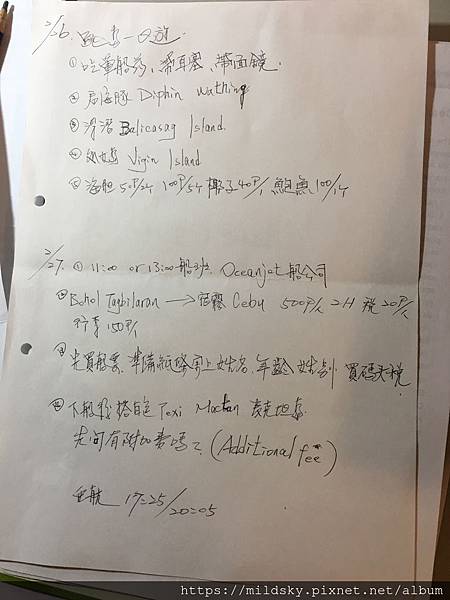 2/26. 跳島一日遊
① 吃暈船药、帶耳塞、帶面鏡.
② 看海豚 Dlphin Wathing
③ 浮潛 Balicasag Island.
④ 處女島 Vigin Island
⑤ 海胆 50P/2个 100P/5个 椰子40P/1 鮑魚100/1个
2/27. ① 11:00 or 13:00 船班. Oceanjet 船公司
② Bohol Tagbilaran → 宿霧 Cebu 500P/人 2H 稅20P/人
行李150P/人
③ 先買船票、準備紙條寫上姓名、年齡、姓別
④ 下船後搭白色 Texi Mactan 麦克坦島.
先问有附加费嗎? (Additional fee)
17:25/20:05
https://mildsky.pixnet.net/album